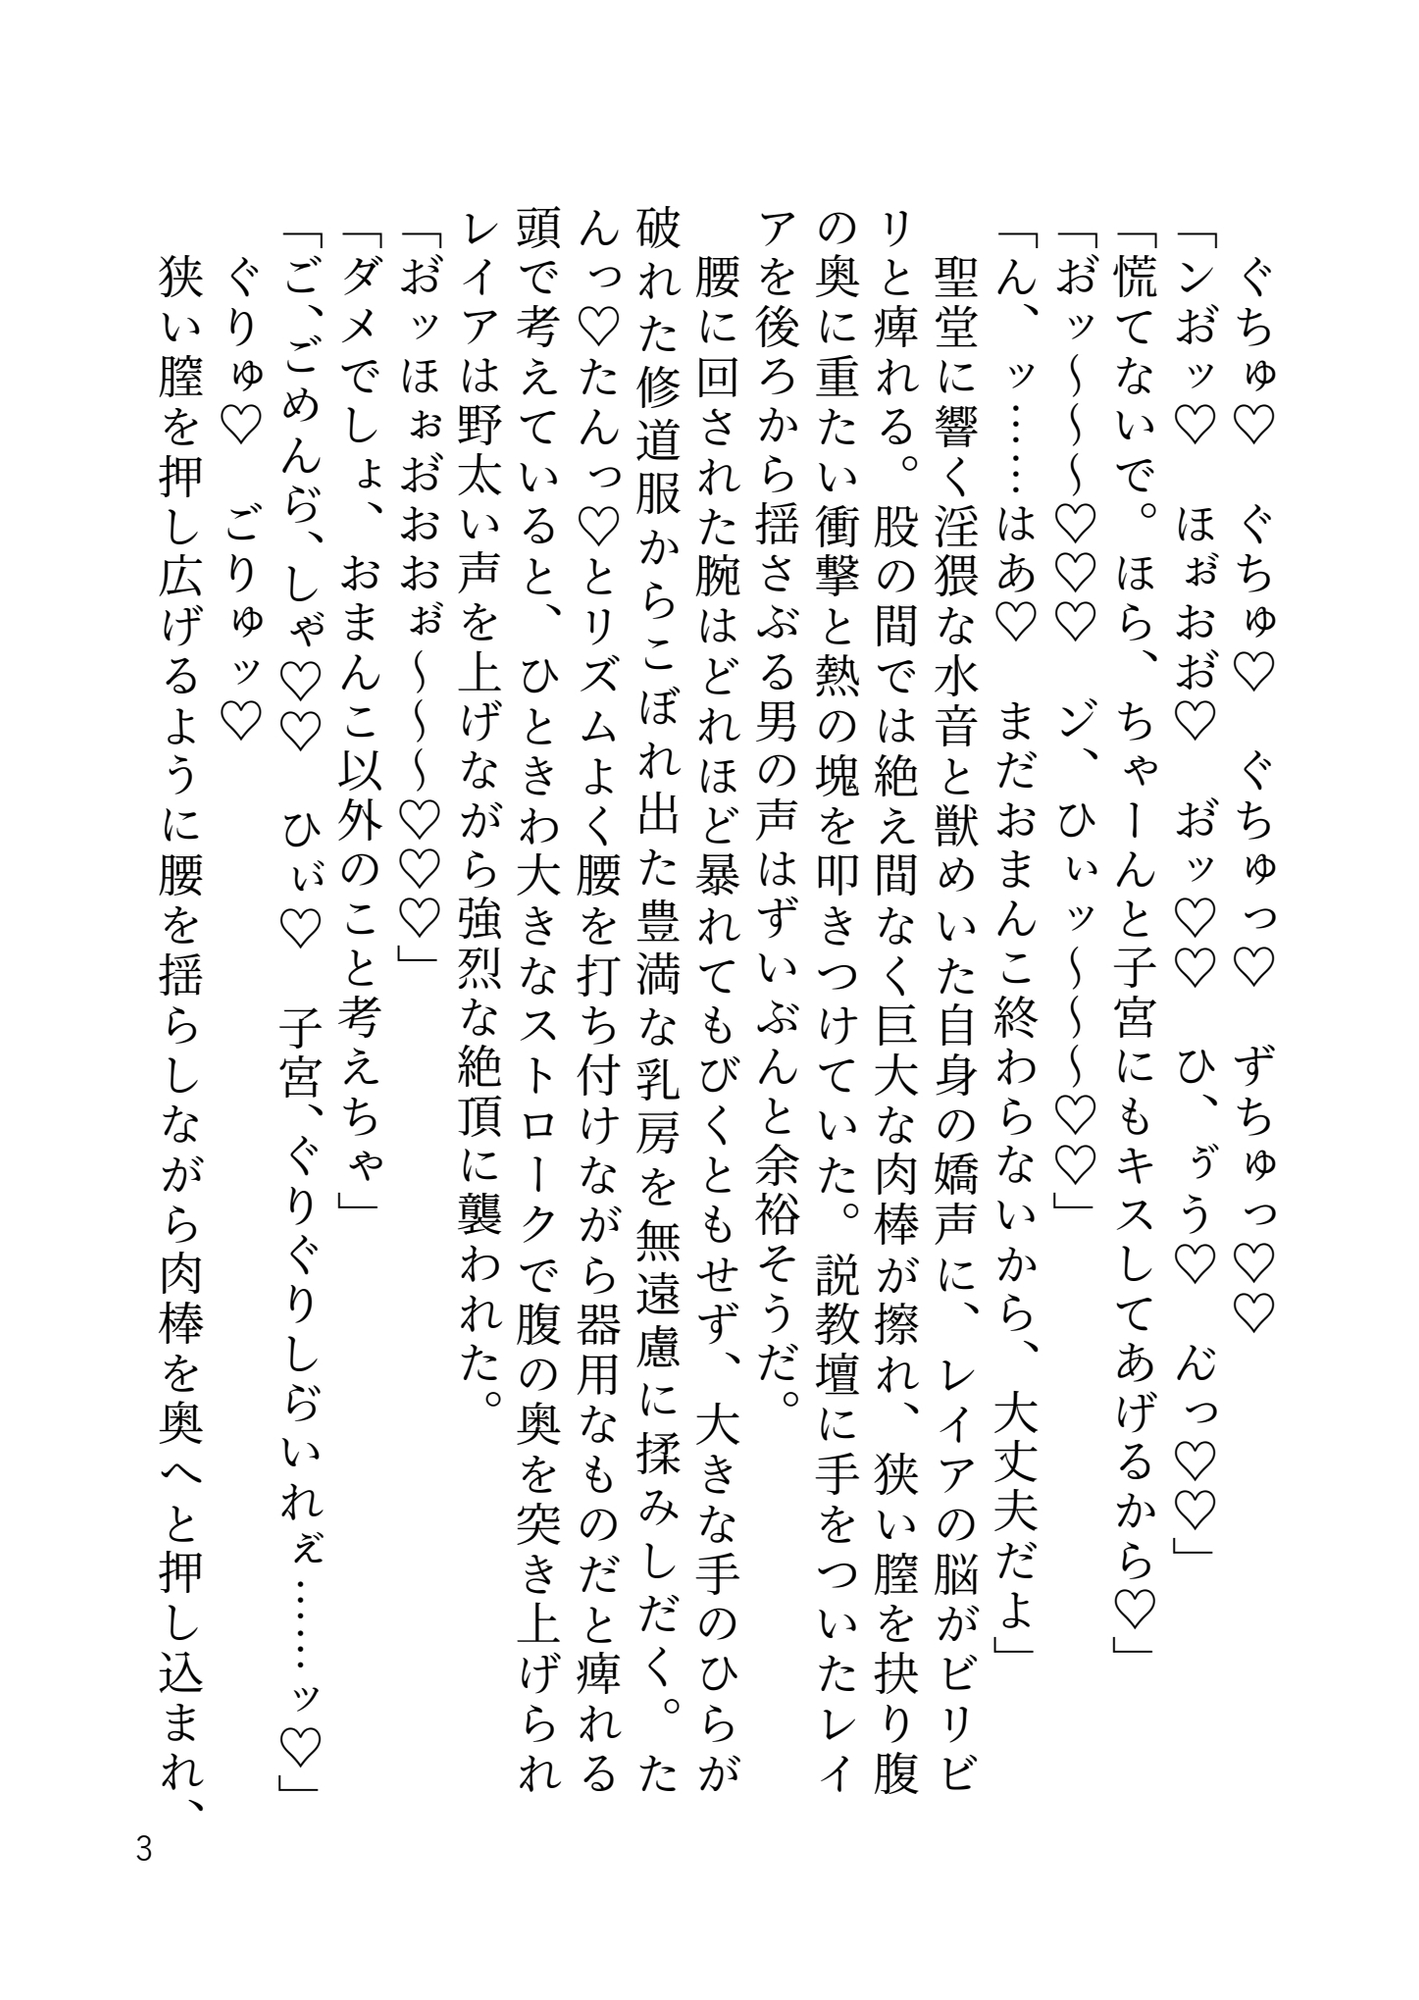 ぐちゅ♡　ぐちゅ♡　ぐちゅっ♡　ずちゅっ♡♡
「ンお゙ッ♡　ほお゙ぉお゙♡　お゙ッ♡♡　ひ、ぅ゙う♡　ん゙っ♡♡」
「慌てないで。ほら、ちゃーんと子宮にもキスしてあげるから♡」
「お゙ッ〜〜〜♡♡♡　ジ、ひぃッ〜〜〜♡♡」
「ん、ッ……はあ♡　まだおまんこ終わらないから、大丈夫だよ」
　聖堂に響く淫猥な水音と獣めいた自身の嬌声に、レイアの脳がビリビ
リと痺れる。股の間では絶え間なく巨大な肉棒が擦れ、狭い膣を抉り腹
の奥に重たい衝撃と熱の塊を叩きつけていた。説教壇に手をついたレイ
アを後ろから揺さぶる男の声はずいぶんと余裕そうだ。
　腰に回された腕はどれほど暴れてもびくともせず、大きな手のひらが
破れた修道服からこぼれ出た豊満な乳房を無遠慮に揉みしだく。た
んっ♡たんっ♡とリズムよく腰を打ち付けながら器用なものだと痺れる
頭で考えていると、ひときわ大きなストロークで腹の奥を突き上げられ
レイアは野太い声を上げながら強烈な絶頂に襲われた。
「お゙ッほぉお゙おおぉ゙〜〜〜♡♡♡」
「ダメでしょ、おまんこ以外のこと考えちゃ」
「ご、ごめんら゙、しゃ゙♡♡　ひぃ゙♡　子宮、ぐりぐりしら゙いれぇ゙……ッ♡」
　ぐりゅ♡　ごりゅッ♡
　狭い膣を押し広げるように腰を揺らしながら肉棒を奥へと押し込まれ、
3